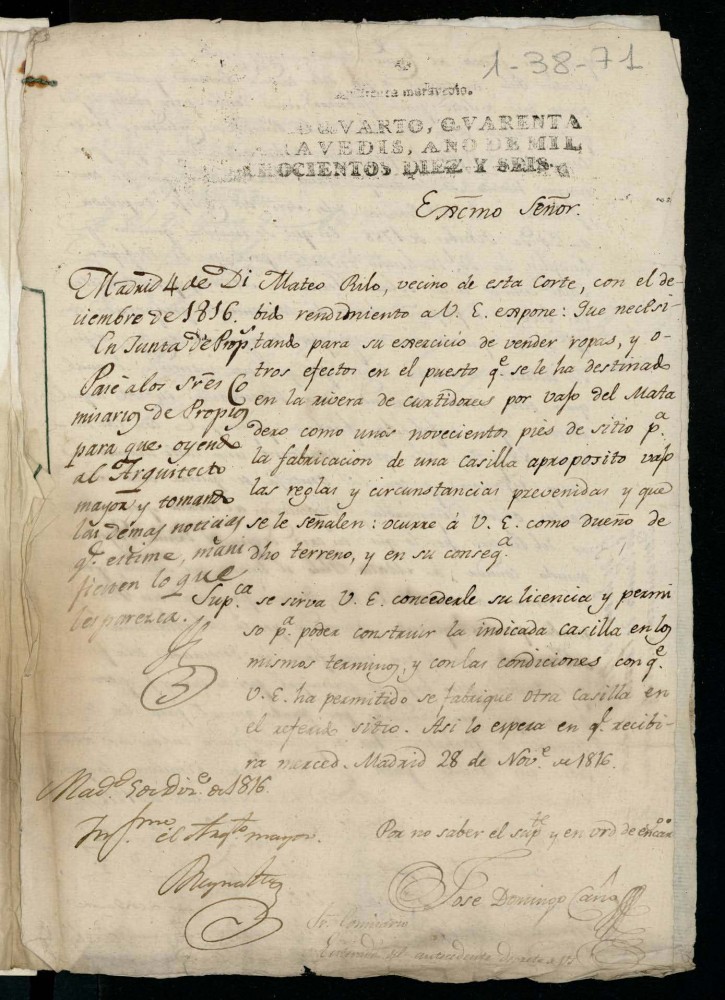 1-38-71
maravedis.
QVARTO, QVARENTA
RAVEDIS, AÑO DE MIL
OCHOCIENTOS DIEZ Y SEIS.
Exc͞mo Señor.
Mateo Rilo, vecino de esta Corte, con el de-
bido rendimiento a V. E. expone: Que necesi-
tando para su exercicio de vender ropas, y o-
tros efectos en el puesto q.e se le ha destinado
en la rivera de curtidores por vajo del Mata
dero como unos novecientos pies de sitio p.a
la fabricacion de una casilla aproposito vajo
las reglas y circunstancias prevenidas y que
se le señalen: ocurre á V. E. como dueño de
dho terreno, y en su conseq.a
Sup.ca se sirva V. E. concederle su licencia y permi
so p.a poder construir la indicada casilla en los
mismos terminos, y con las condiciones con q.e
V. E. ha permitido se fabrique otra casilla en
el referido sitio. Asi lo espera en q.e recibi-
ra merced. Madrid 28 de Nov.e de 1816.
Por no saber el sup.te y en vrd de encargo
Jose Domingo Caña
Madrid 4 de Di
ciembre de 1816.
En Junta de Prop.s
Pase á los Sres Co
misarios de Propios
para que oyendo
al Arquitecto
mayor y tomando
las demas noticias
q.e estime, mani
fiesten lo que
les parezca.
Mad.d 5 de Diz.e de 1816.
Inf.rme el Arq.to mayor.
Reynalte
Sr. Comisario
Enterado del antecedente decreto